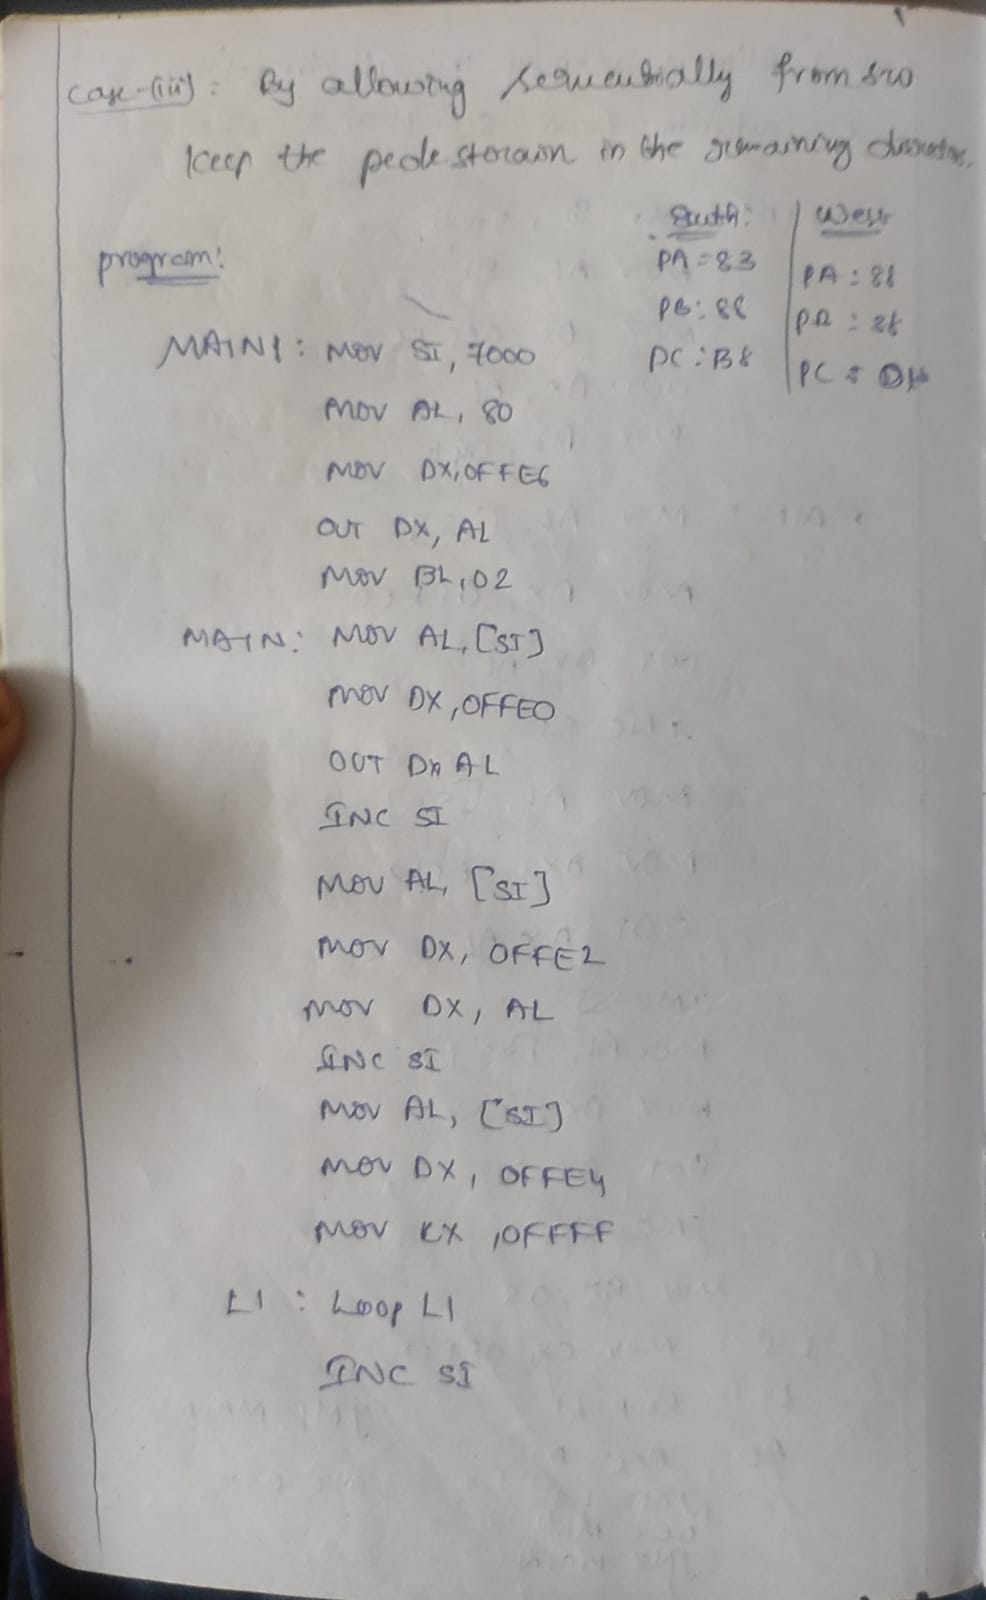 case-(iii): By allowing sequentially from s
keep the pedestorain in the remaining
South: West
PA = 83 PA : 88
program:
PB : 88
MAIN1: MOV SI, 7000
PC : B8 PC :
MOV AL, 80
MOV DX, OFFE6
OUT DX, AL
MOV BL, 02
MAIN: MOV AL, [SI]
MOV DX, OFFE0
OUT DX AL
INC SI
MOV AL, [SI]
MOV DX, OFFE2
MOV DX, AL
INC SI
MOV AL, [SI]
MOV DX, OFFE4
MOV CX, OFFFF
L1 : Loop L1
INC SI